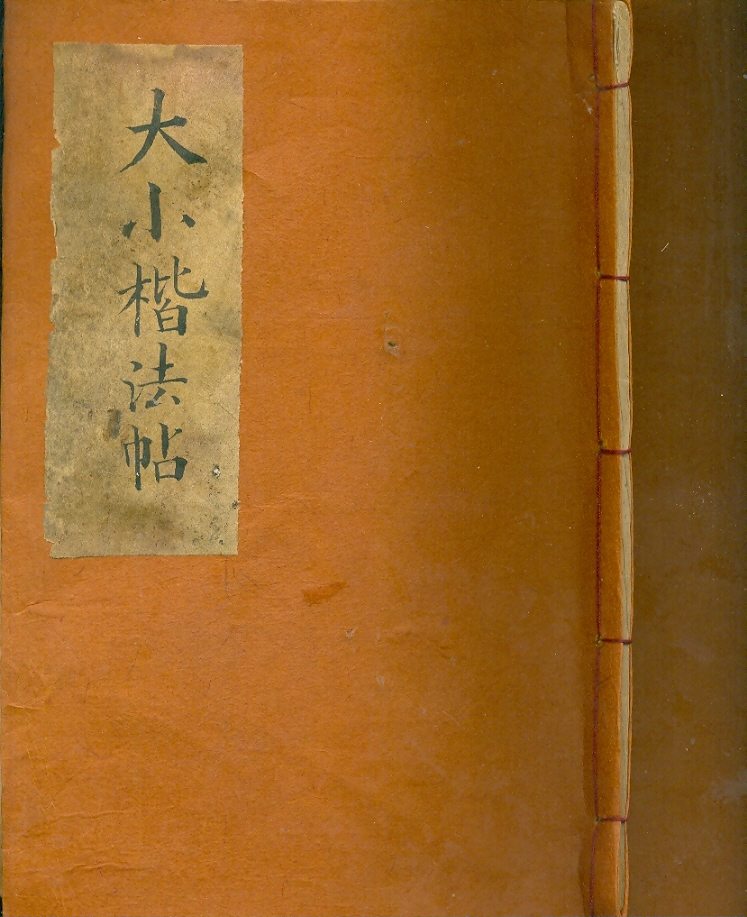 大小楷法帖